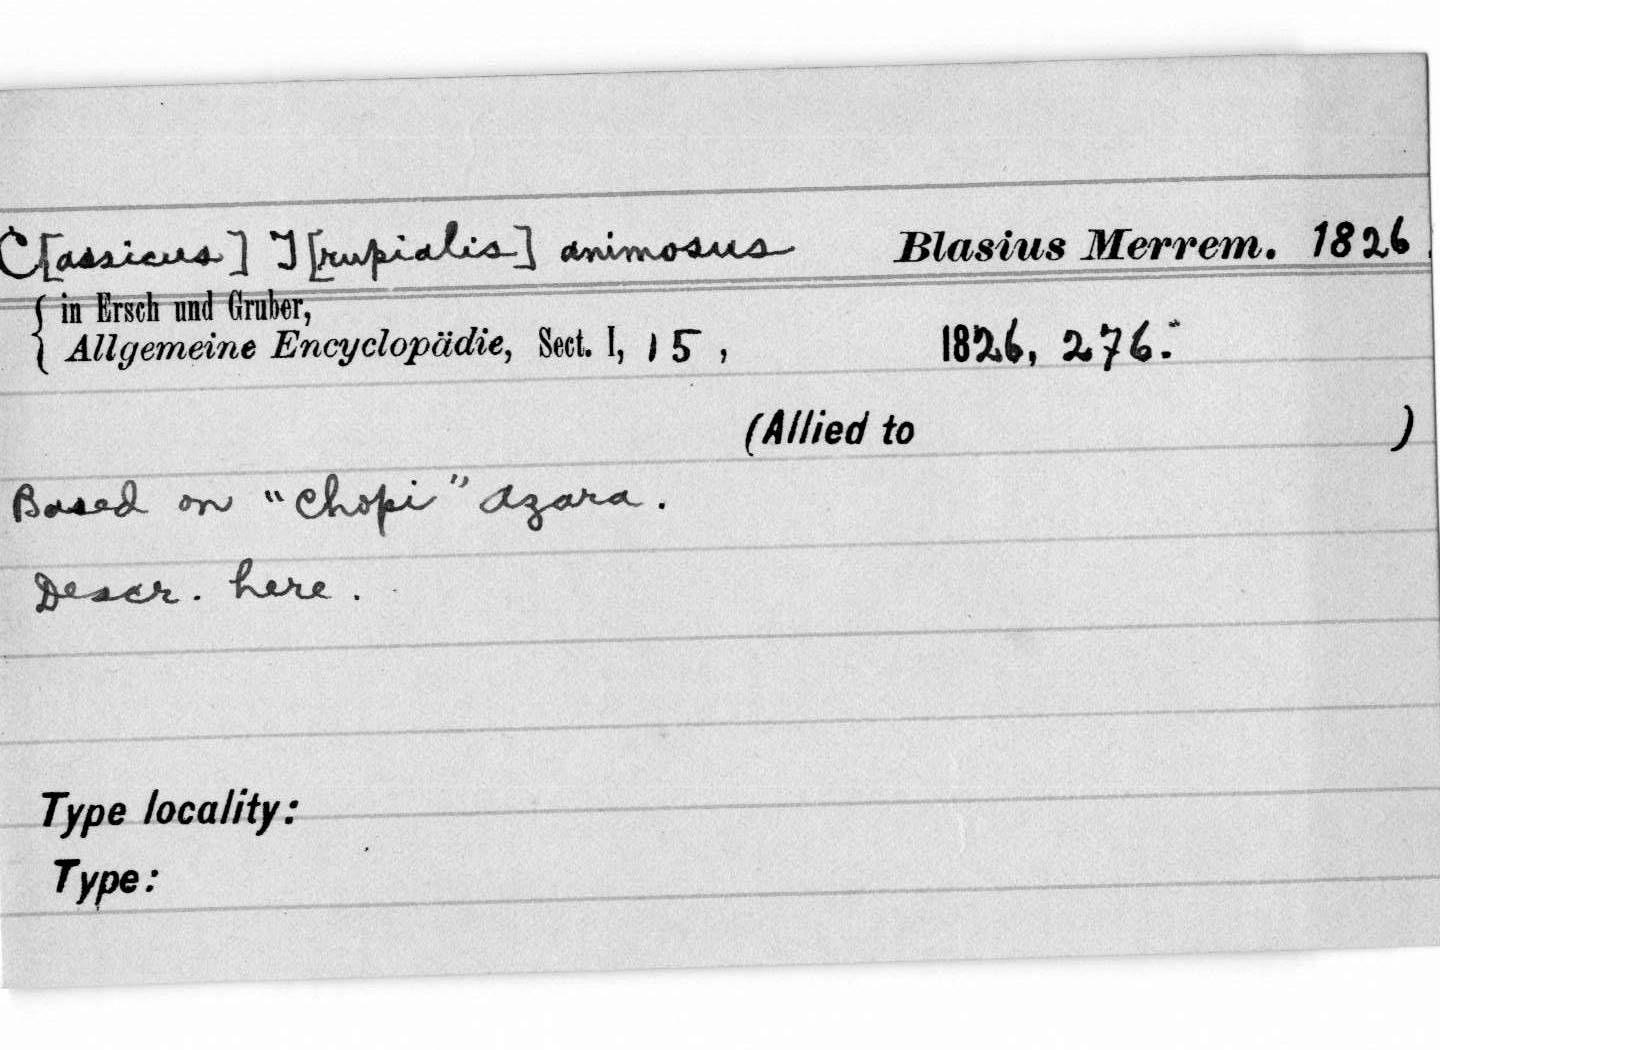 C[assicus] T[rupialis] animosus Blasius Merrem. 1826.
in Ersch und Gruber,
Allgemeine Encyclopädie, Sect. I, 15, 1826, 276.
(Allied to )
Based on "Chopi" Azara.
Descr. here.
Type locality:
Type: